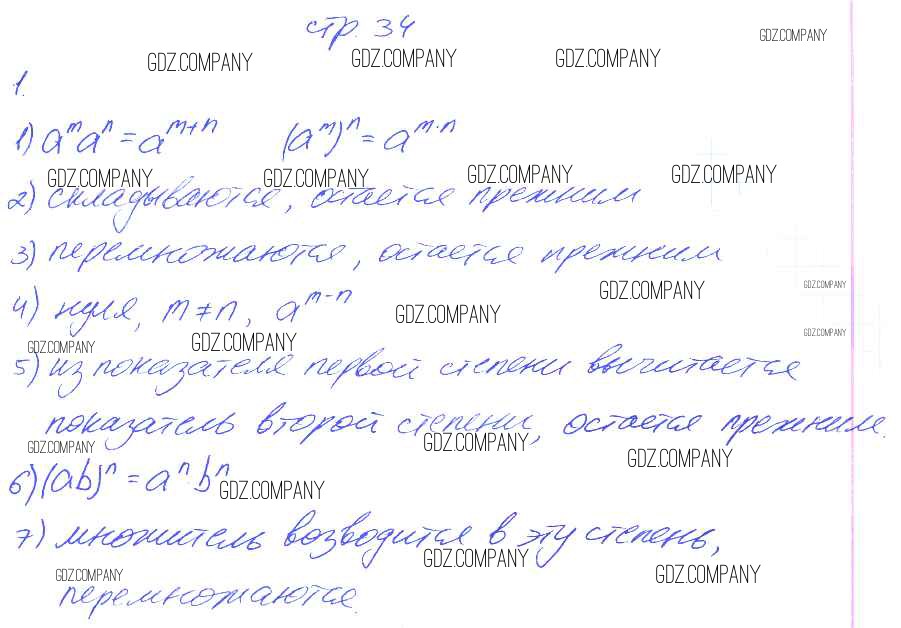 стр. 34
GDZ.COMPANY
GDZ.COMPANY GDZ.COMPANY GDZ.COMPANY
1.
1) aᵐaⁿ = aᵐ⁺ⁿ (aᵐ)ⁿ = aᵐ·ⁿ
GDZ.COMPANY GDZ.COMPANY GDZ.COMPANY GDZ.COMPANY
2) складываются, остаётся прежним
3) перемножаются, остается прежним
GDZ.COMPANY GDZ.COMPANY
4) нуля, m ≠ n, aᵐ⁻ⁿ
GDZ.COMPANY
GDZ.COMPANY GDZ.COMPANY GDZ.COMPANY
5) из показателя первой степени вычитается
показатель второй степени, остается прежним.
GDZ.COMPANY GDZ.COMPANY GDZ.COMPANY
6) (ab)ⁿ = aⁿ·bⁿ
GDZ.COMPANY
7) множитель возводится в эту степень,
GDZ.COMPANY
GDZ.COMPANY GDZ.COMPANY
перемножаются.